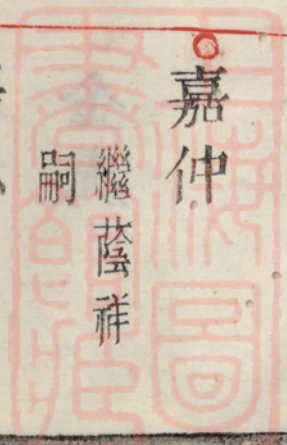 嘉仲
繼蔭祥
嗣